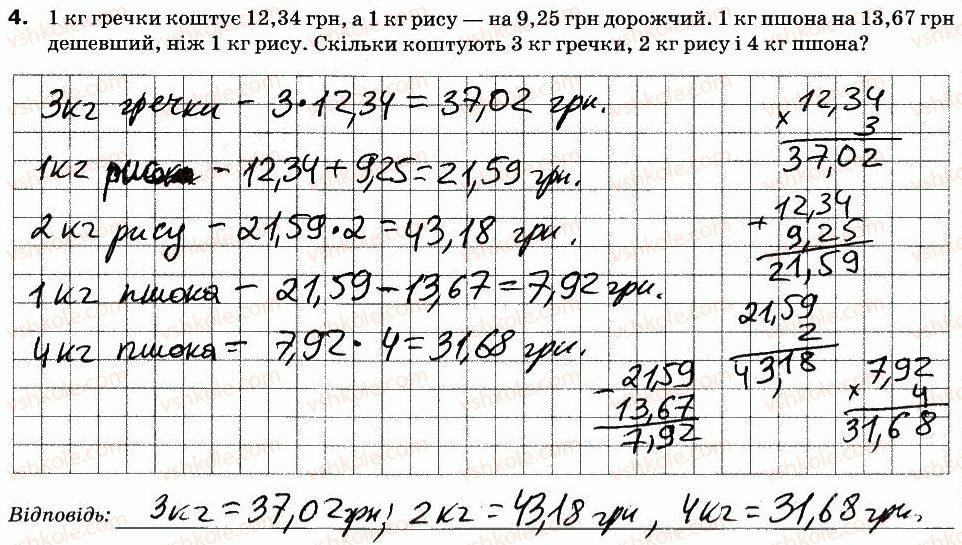 4. 1 кг гречки коштує 12,34 грн, а 1 кг рису — на 9,25 грн дорожчий. 1 кг пшона на 13,67 грн
дешевший, ніж 1 кг рису. Скільки коштують 3 кг гречки, 2 кг рису і 4 кг пшона?
3кг гречки – 3·12,34 = 37,02 грн.
1кг – 12,34+9,25=21,59 грн.
2 кг рису – 21,59·2=43,18 грн.
1 кг пшона – 21,59–13,67=7,92 грн.
4кг пшона = 7,92·4=31,68 грн.
12,34
× 3
37,02
12,34
+ 9,25
21,59
21,59
2
43,18
– 21,59
13,67
7,92
7,92
× 4
31,68
Відповідь: 3кг = 37,02грн; 2кг = 43,18 грн, 4кг = 31,68 грн.